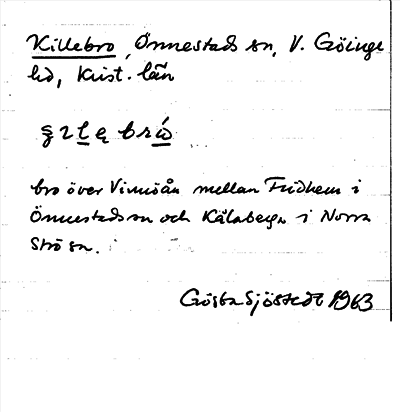 Killebro, Önnestads sn, V. Göinge
hd, Krist. län
bro över Vinnöån mellan Fridhem i
Önnestads sn och Kälaberga i Norra
Strö sn.
Gösta Sjöstedt 1963